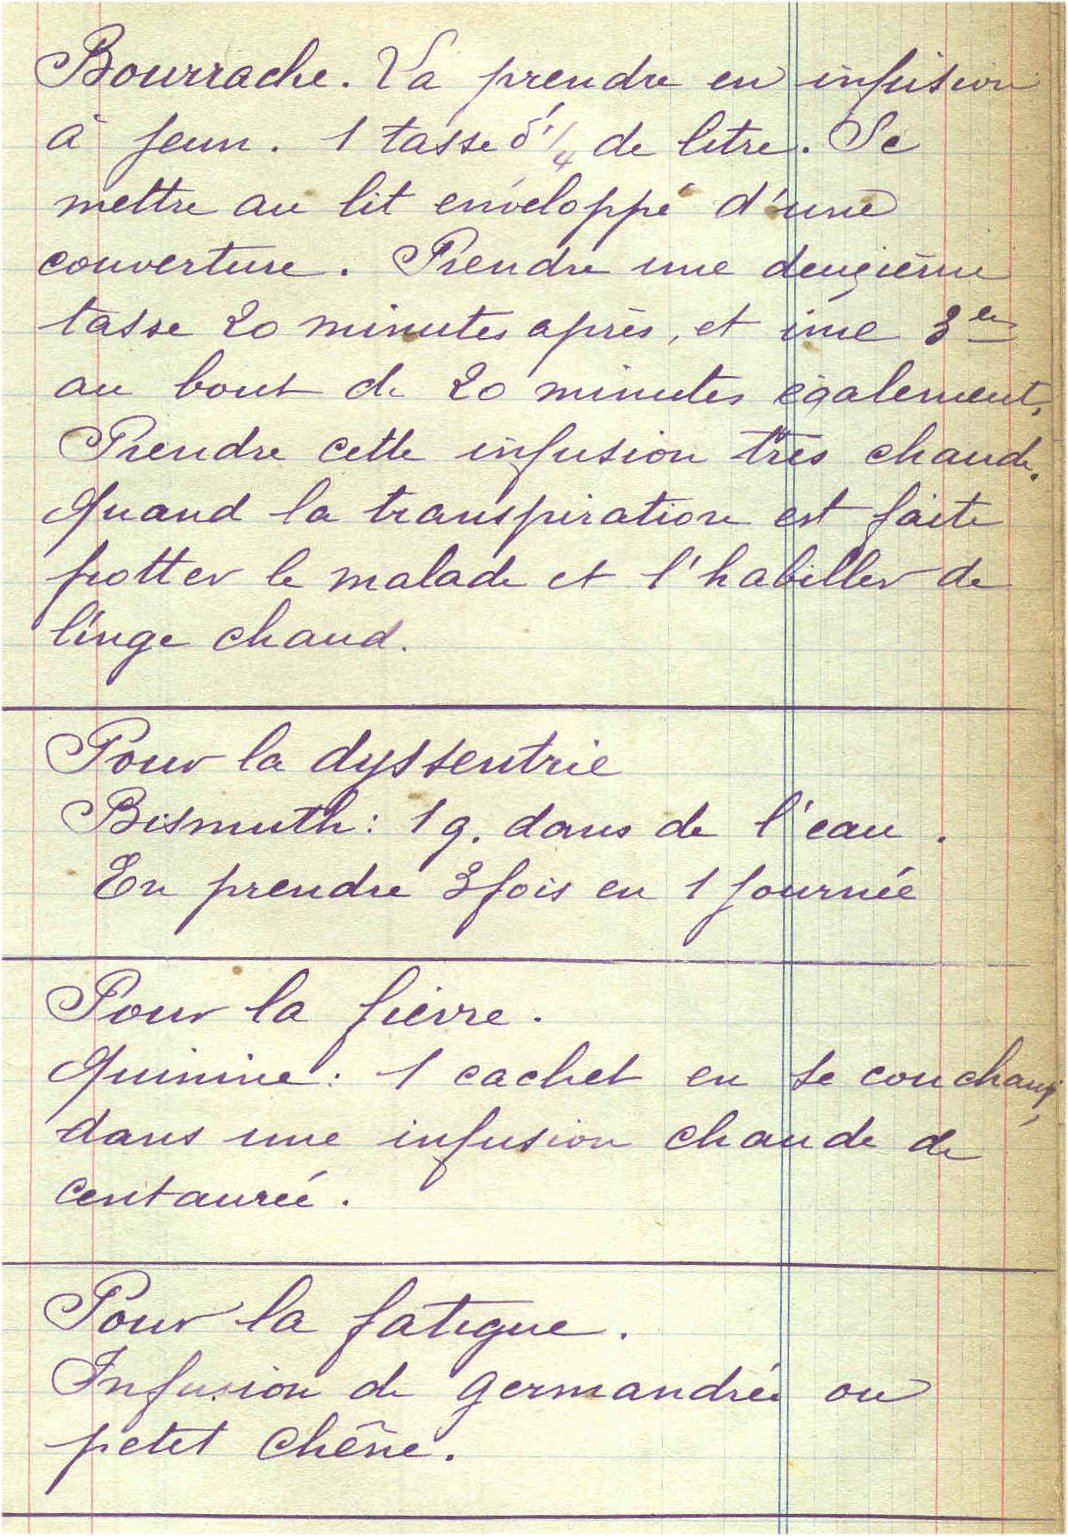 Bourrache. Va prendre en infusion
à jeun. 1 tasse d'1/4 de litre. Se
mettre au lit enveloppé d'une
couverture. Prendre une deuxième
tasse 20 minutes après, et une 3e
au bout de 20 minutes également.
Prendre cette infusion très chaude.
Quand la transpiration est faite
frotter le malade et l'habiller de
linge chaud.
Pour la dyssentrie
Bismuth : 1 g. dans de l'eau.
En prendre 3 fois en 1 journée
Pour la fièvre.
Quinine : 1 cachet en se couchant,
dans une infusion chaude de
centaurée.
Pour la fatigue.
Infusion de germandrée ou
petit chêne.